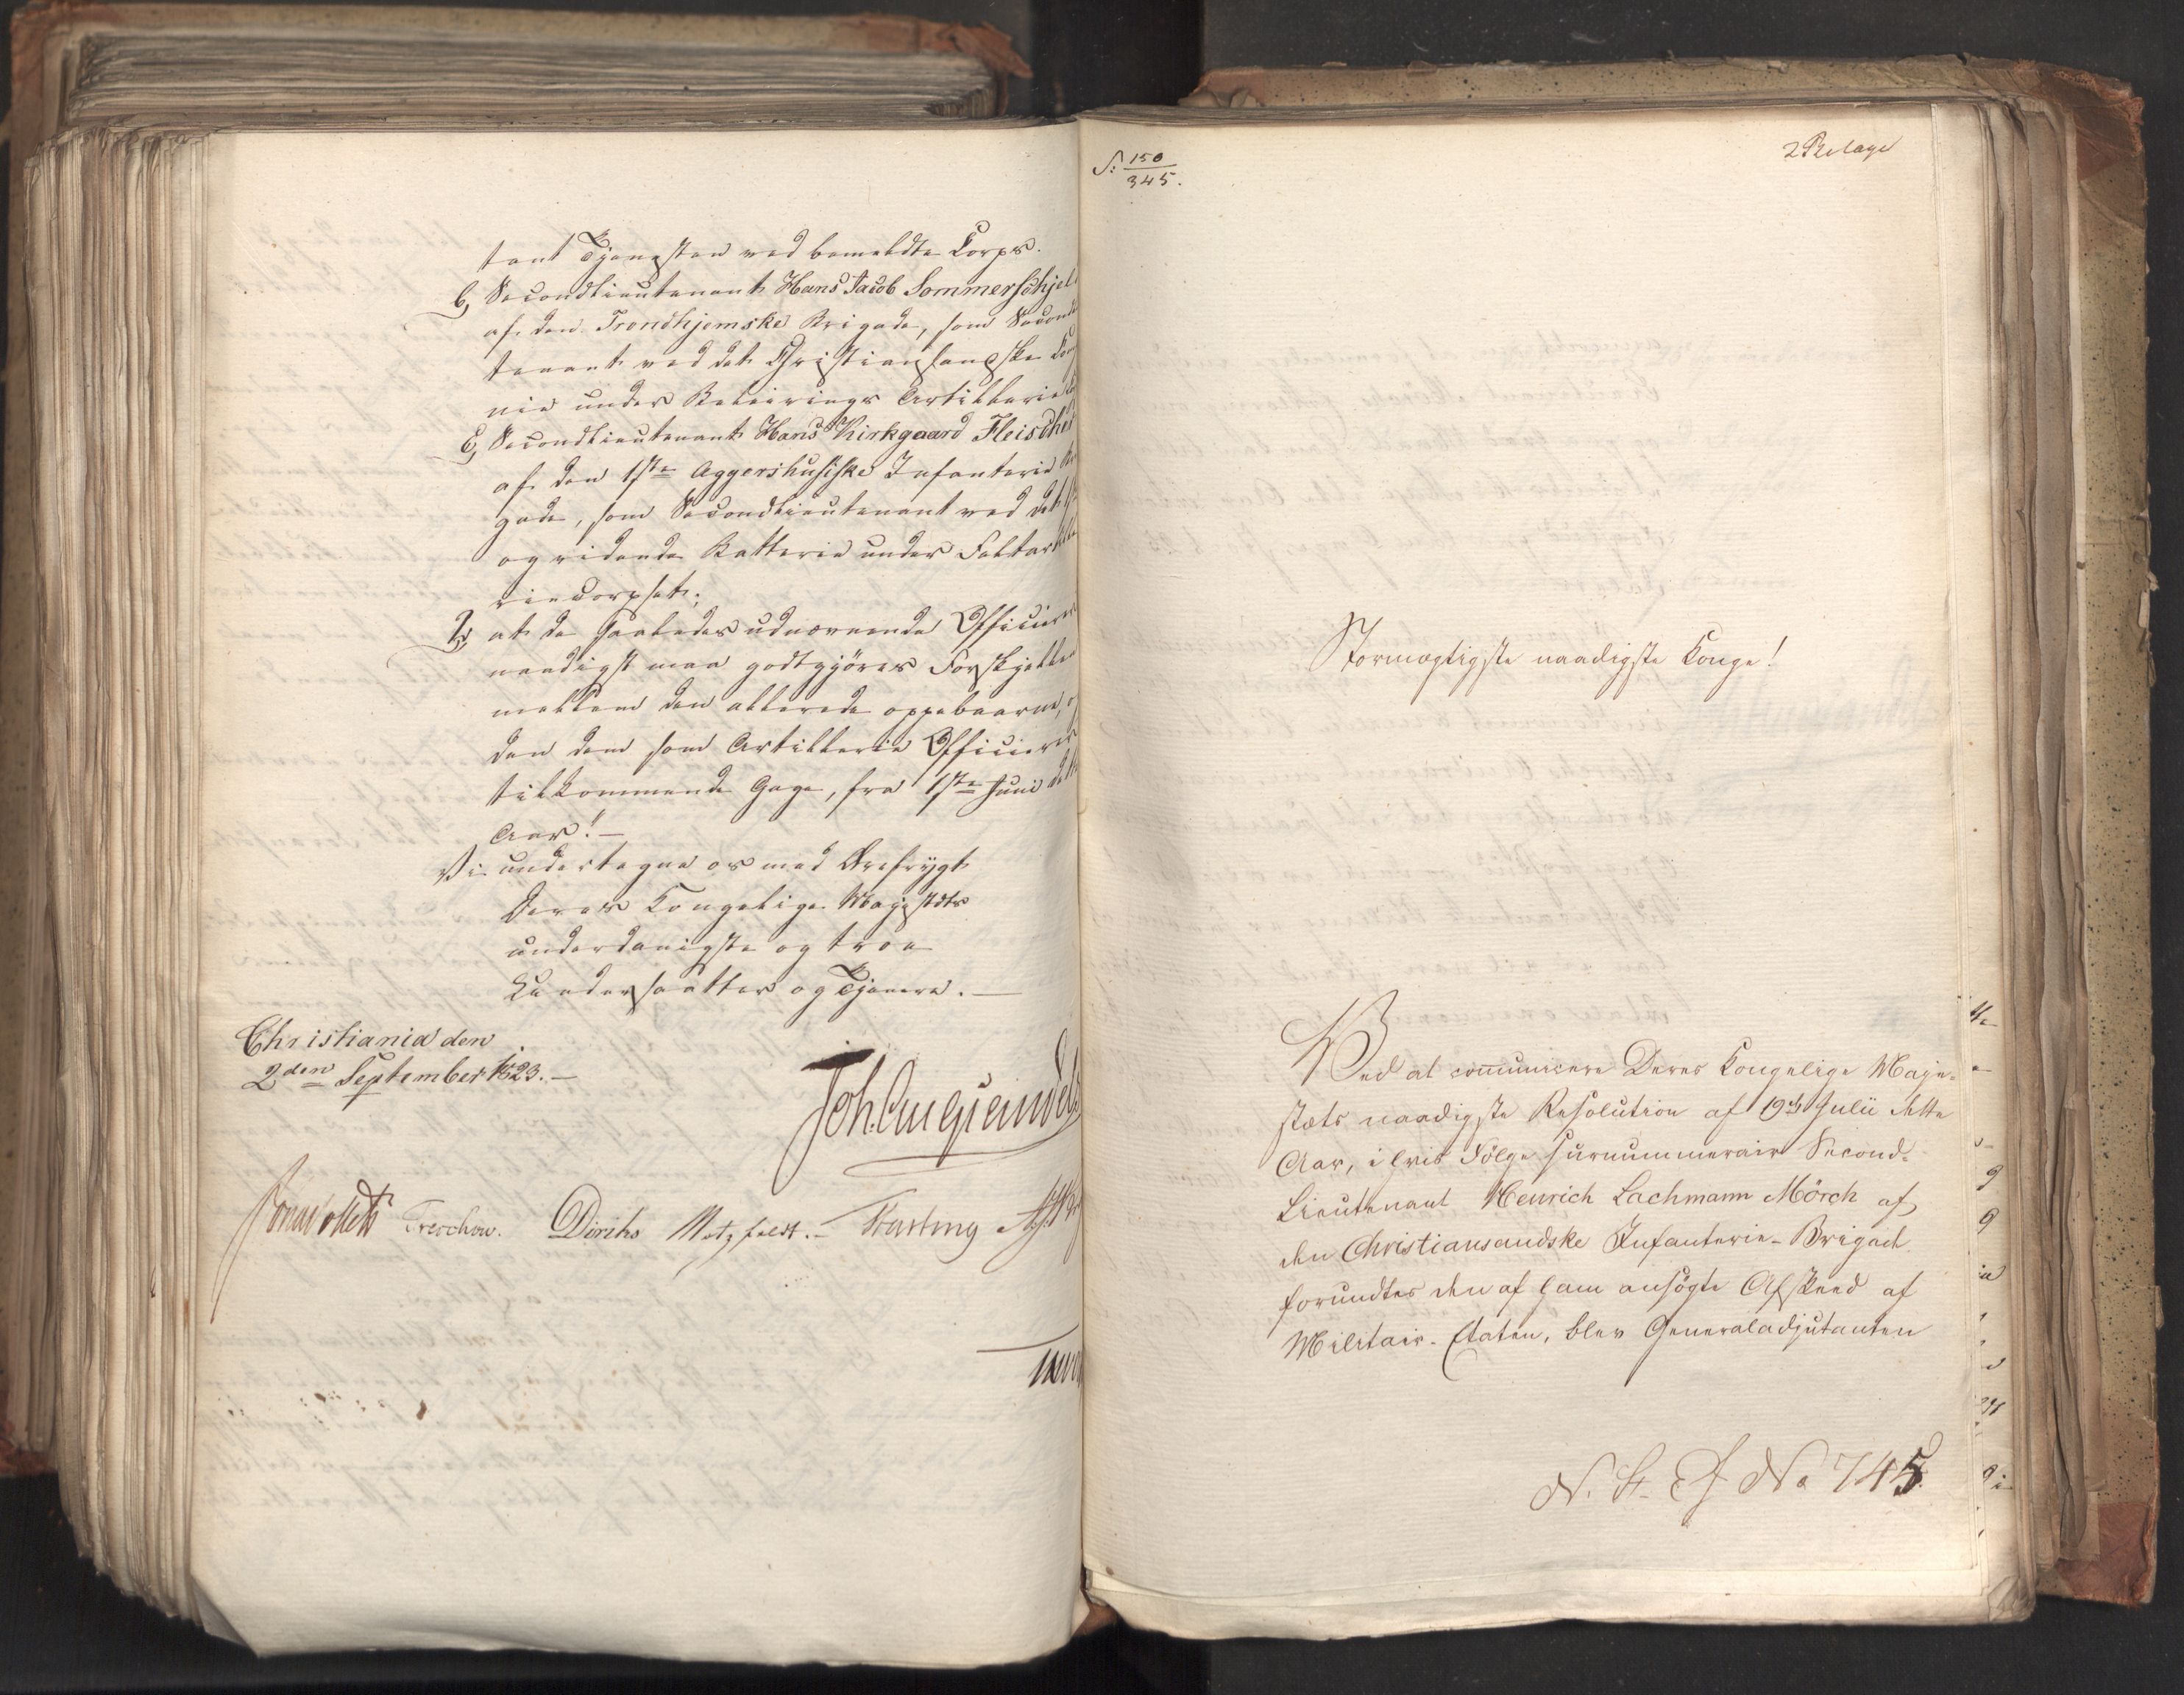 tant Tjenesten ved bemeldte Corps.
b, Secondlieutenant Hans Jacob Sommerschjel
af den Trondhjemske Brigade, som Second
tenant ved det Christiansandske Com
nie under Beleirings Artillerie
c, Secondlieutenant Hans Kirkgaard Fleischer
af den 1ste Aggershusiske Infanterie Bri
gade, som Secondlieutenant ved det
og ridende Batterie under Feltartille
riecorpset;
at de saaledes udnævnende Officierer
naadigst maa godtgjöres Forskjellen
mellem den allerede oppebaarne, og
den dem som Artillerie Officierer
tilkommende Gage, fra 1ste Juni dette
Aar! —
Vi undertegne os med Ærefrygt
Deres Kongelige Majestæts
underdanigste og troe
Undersaatter og Tjenere. —
Christiania den
2den September 1823. —
Joh. Cas
Treschow. Diriks Motzfeldt. —
S: 150
345.
2 Bilage
Stormægtigste naadigste Konge!
Ved at communicere Deres Kongelige Maje-
stæts naadigste Resolution af 19de Julii dette
Aar, i hvis Fölge surnummerair Second-
Lieutenant Henrich Lachmann Mörch af
den Christiansandske Infanterie-Brigade
forundtes den af ham ansögte Afskeed af
Militair-Etaten, blev Generaladjutanten
N. St. No 745